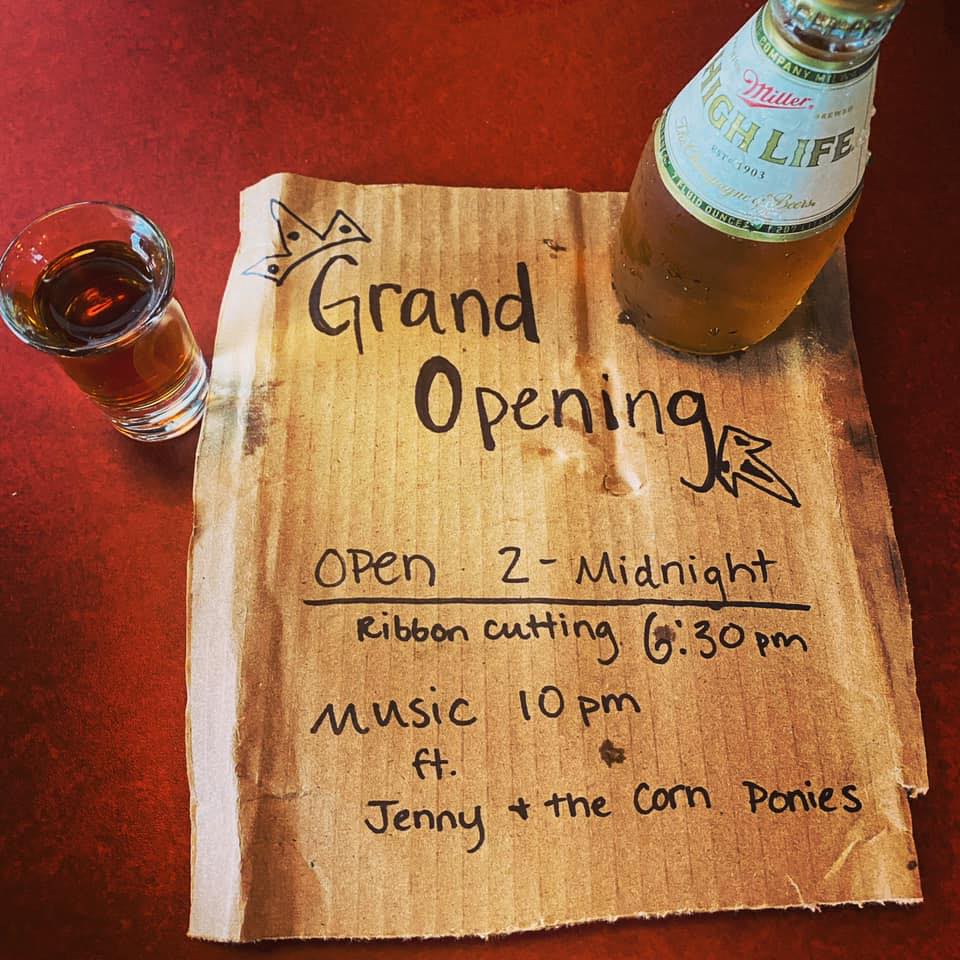 COMPANY MIL
Miller
BREWED
HIGH LIFE
EST. 1903
The Champagne of Beers
7 FLUID OUNCES
Grand
Opening
OPEN 2 - Midnight
Ribbon cutting 6:30 pm
Music 10 pm
ft.
Jenny + the Corn Ponies